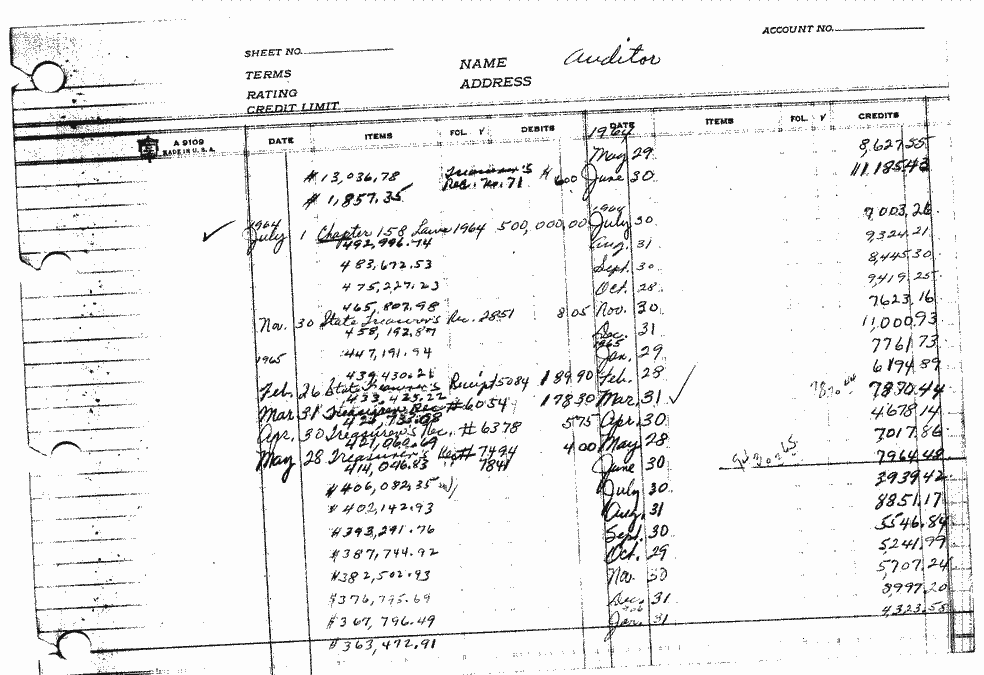 ACCOUNT NO.
SHEET NO.
TERMS
RATING
CREDIT LIMIT
NAME Auditor
ADDRESS
A 9109
MADE IN U.S.A.
DATE ITEMS FOL. √ DEBITS DATE ITEMS FOL. √ CREDITS
1964
May 29 8,627.55
$13,036.78 Treasurer's Rec. No. 71 $ 6.00 June 30 11,185.43
$ 1,857.35
1964 1964
July 1 Chapter 158 Laws 1964 500,000.00 July 30 7,003.26
492,996.74 Aug. 31 9,324.21
483,672.53 Sept. 30 8,445.30
475,227.23 Oct. 28 9,419.25
465,807.98
Nov. 30 State Treasurer's Rec. 2851 8.05 Nov. 30 7623.16
458,192.87 Dec. 31 11,000.93
1965 447,191.94 1965 Jan. 29 7761.73
439,430.21
Feb. 26 State Treasurer's Receipt 5084 189.90 Feb. 28 6194.89
433,425.22
Mar. 31 Treasurer's Rec # 6054 178.30 Mar. 31 7830.44
Apr. 30 Treasurer's Rec. # 6378 5.75 Apr. 30 4678.14
421,060.69
May 28 Treasurer's Rec # 7494 4.00 May 28 7017.86
414,046.83 " 7841 June 30 7964.48
$406,082.35 July 30 3939.42
$402,142.93 Aug. 31 8851.17
$393,291.76 Sept. 30 5546.84
$387,744.92 Oct. 29 5241.99
$382,502.93 Nov. 30 5,707.24
$376,795.69 Dec. 31 8,997.20
$367,796.49 Jan. 31 4,323.58
$363,472.91